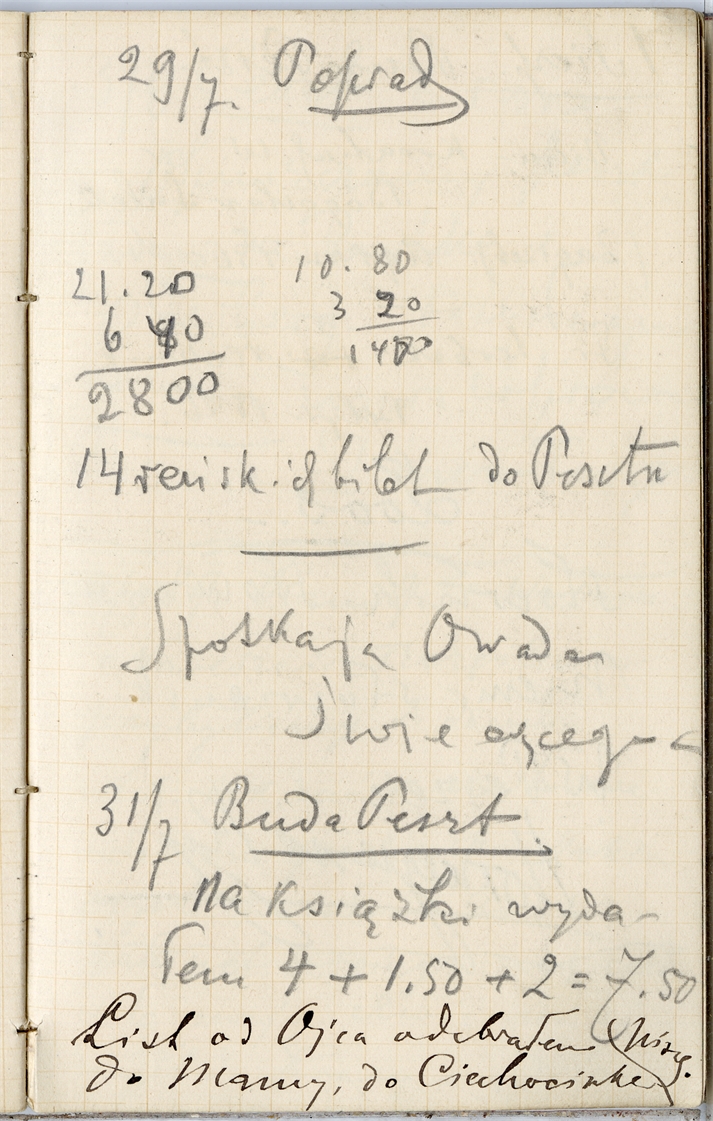 29/7. Poprad
21.20
6 40
2800
10.80
3 20
1400
14 reńskich bilet do Pesztu
Spotkaja Owada
31/7 Buda Peszt.
Na książki wyda-
łem 4 + 1.50 + 2 = 7.50
List od Ojca odebrałem
do Mamy, do Ciechocinka